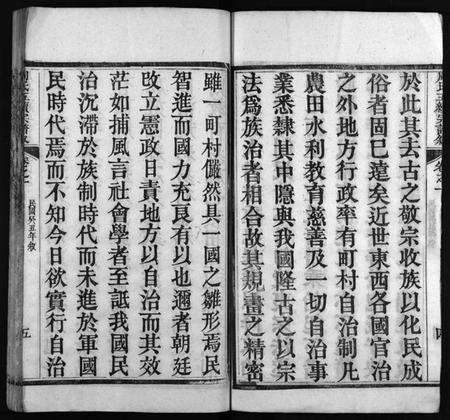 於此其去古之敬宗收族以化民成
俗者固已遠矣近世東西各國官治
之外地方行政率有町村自治制凡
農田水利教育慈善及一切自治事
業悉隸其中隱與我國隆古之以宗
法爲族治者相合故其規畫之精密
四
雖一町村儼然具一國之雛形焉民
智進而國力充良有以也邇者朝廷
改立憲政日責地方以自治而其效
茫如捕風言社會學者至詆我國民
治沉滯於族制時代而未進於軍國
民時代焉而不知今日欲實行自治
民國乙五年敘
五